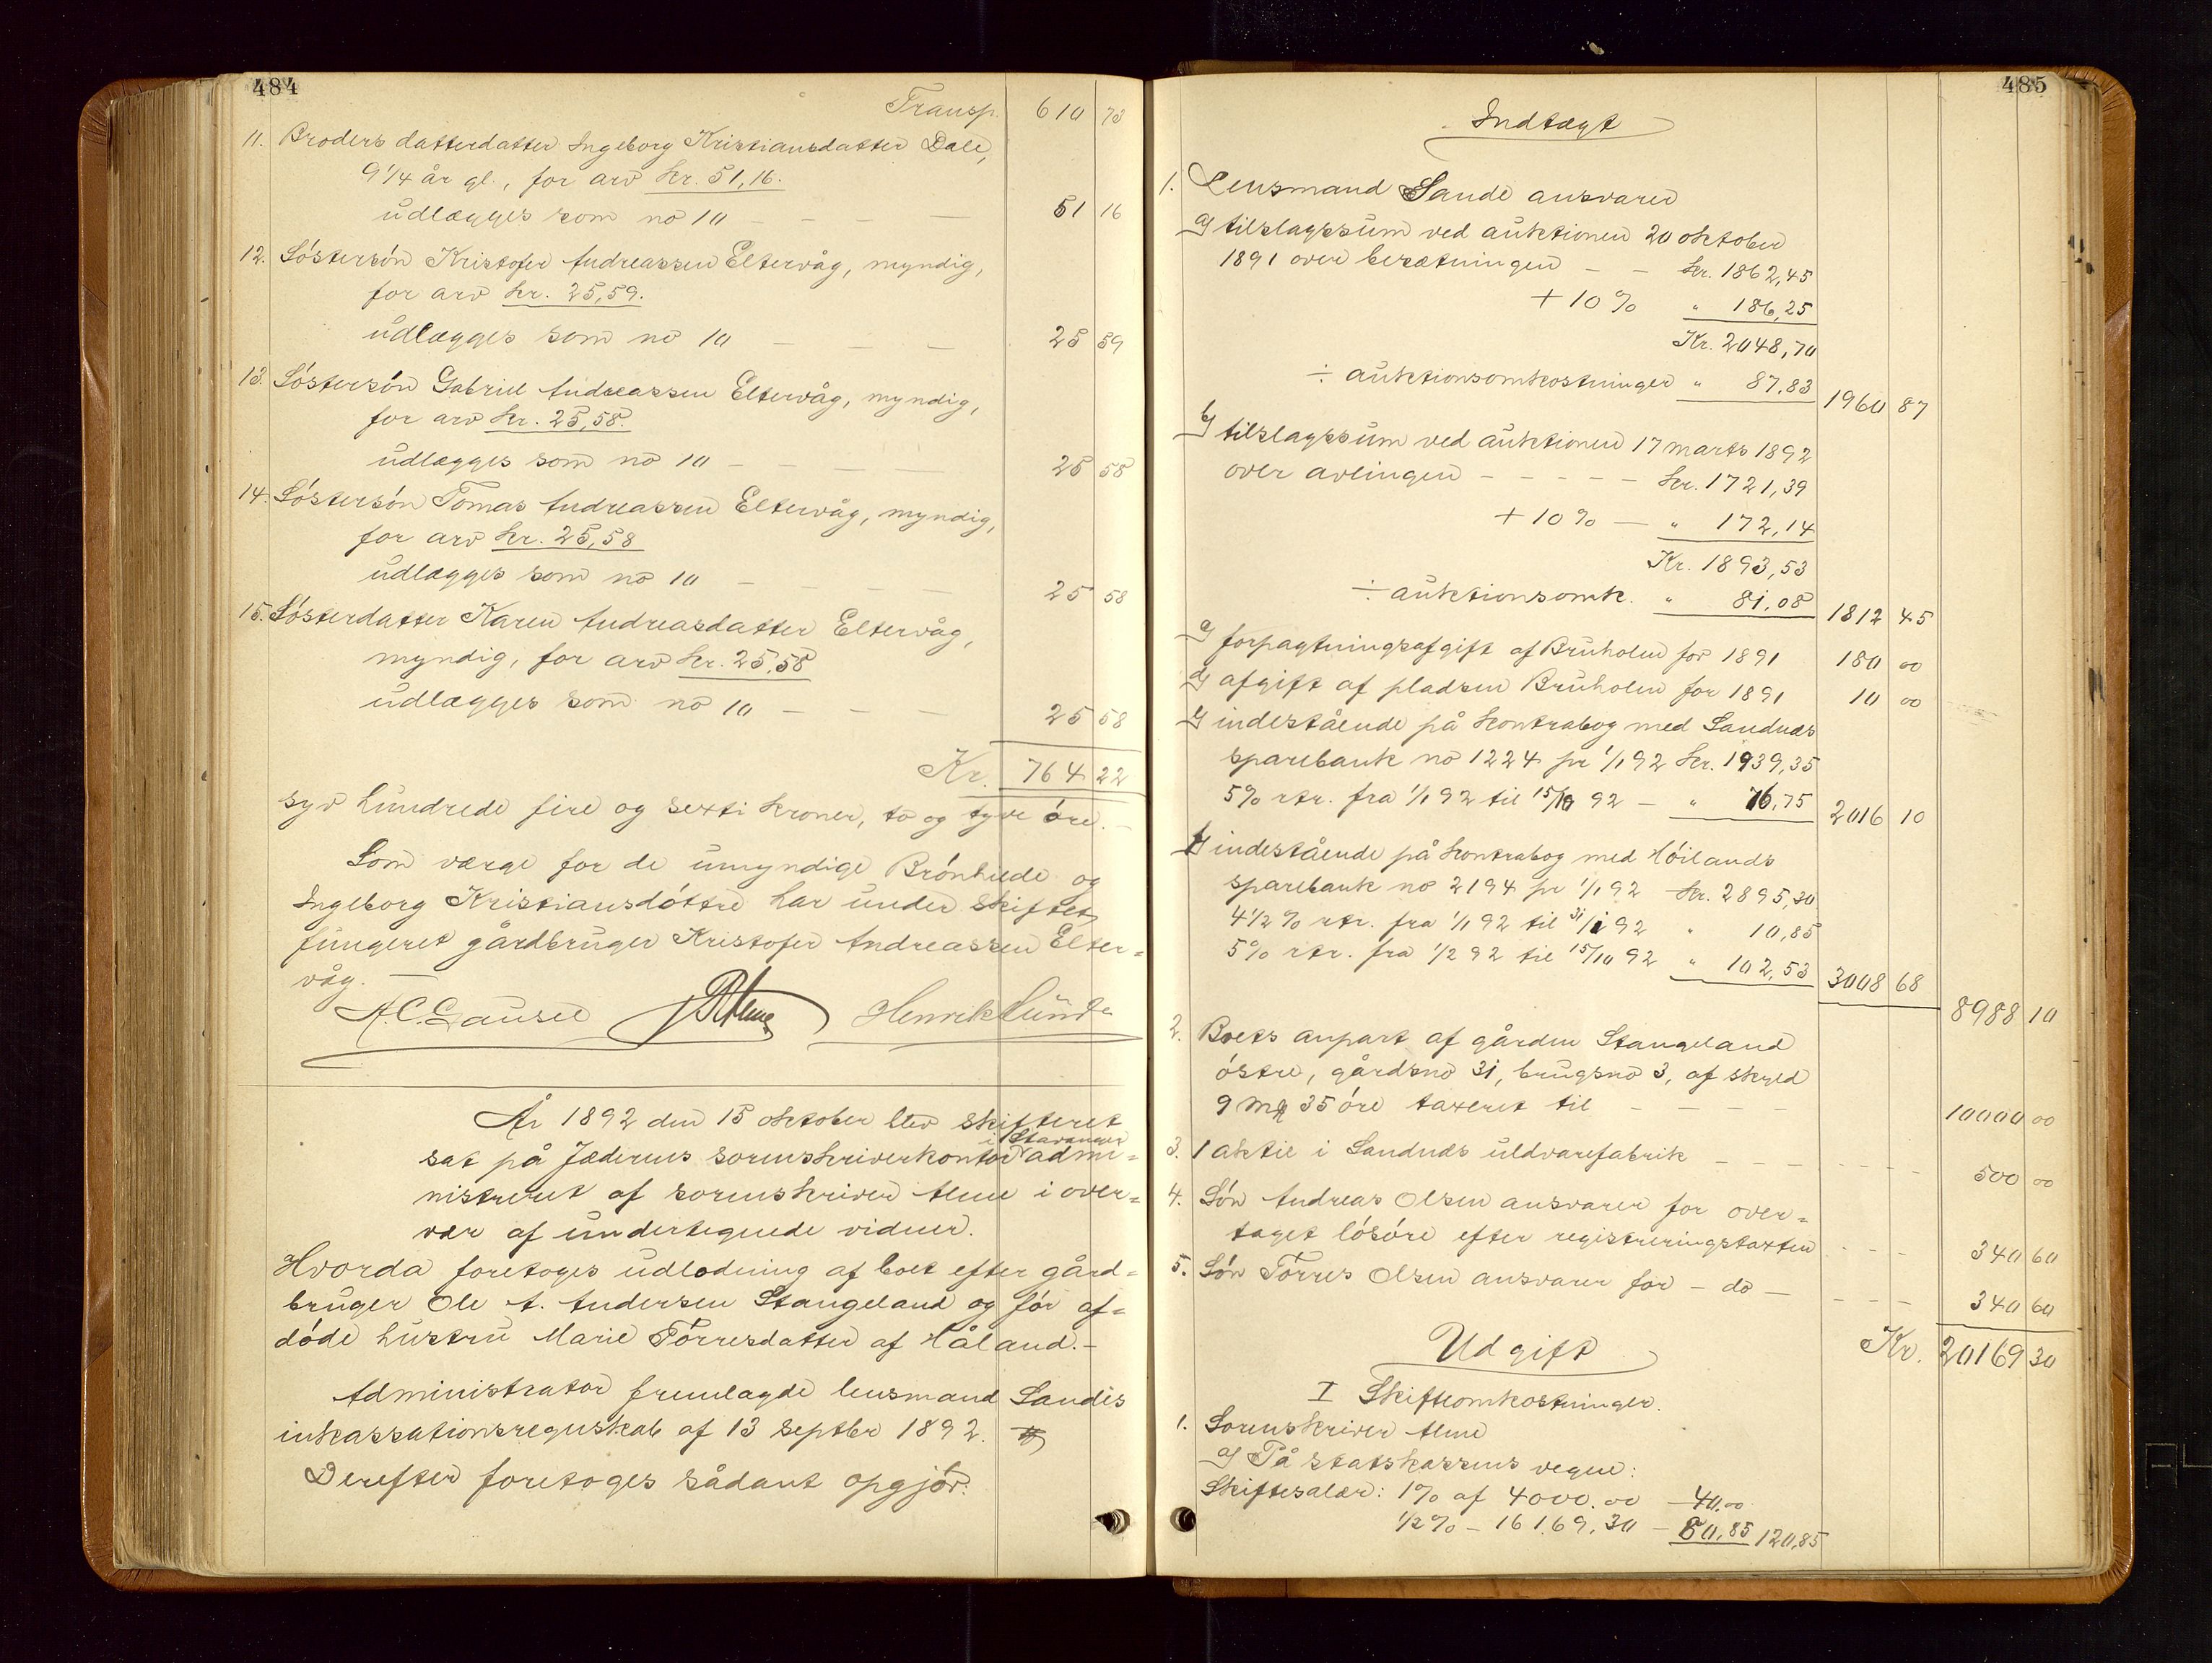 484
Transp. 610 73
11. Broders datterdatter Ingeborg Kristiansdatter Dale,
9 1/4 år gl., for arv kr. 51,16.
udlægges som no 10 — — — — 51 16
12. Søstersøn Kristofer Andreassen Eltervåg, myndig,
for arv kr. 25,59.
udlægges som no 10 — — — 25 59
13. Søstersøn Gabriel Andreassen Eltervåg, myndig,
for arv kr. 25,58.
udlægges som no 10 — — — — 25 58
14. Søstersøn Tomas Andreassen Eltervåg, myndig,
for arv kr. 25,58
udlægges som no 10 — — — 25 58
15. Søsterdatter Karen Andreasdatter Eltervåg,
myndig, for arv kr. 25,58
udlægges som no 10 — — — 25 58
Kr. 764 22
syv hundrede fire og sexti kroner, to og tyve øre. —
Som værge for de umyndige Brønhilde og
Ingeborg Kristiansdøttre har under skiftet
fungeret gårdbruger Kristofer Andreassen Elter=
våg. —
Henrik Lunde
År 1892 den 15 oktober blev skifteret
i Stavanger
sat på Jæderens sorenskriverkontor admi=
nistreret af sorenskriver Alme i over=
vær af undertegnede vidner.
Hvorda foretoges udlodning af boet efter gård=
bruger Ole A. Andersen Stangeland og før af=
døde hustru Marie Tørresdatter af Håland. —
Administrator fremlagde lensmand Sandes
inkassationsregnskab af 13 septbr 1892.
Derefter foretoges sådant opgjør:
485
Indtægt
1. Lensmand Sande ansvarer
a) tilslagssum ved auktionen 20 oktober
1891 over besætningen — — kr. 1862,45
+ 10 % " 186,25
Kr. 2048,70
÷ auktionsomkostninger " 87,83 1960 87
b) tilslagssum ved auktionen 17 marts 1892
over avlingen — — — — — kr. 1721,39
+ 10 % — " 172,14
Kr. 1893,53
÷ auktionsomk. " 81,08 1812 45
c) forpagtningsafgift af Bruholen for 1891 180 00
d) afgift af pladsen Bruholen for 1891 10 00
e) indestående på kontrabog med Sandnes
sparebank no 1224 pr 1/1 92 kr. 1939,35
5% rtr. fra 1/1 92 til 15/10 92 — " 76,75 2016 10
f) indestående på kontrabog med Høilands
sparebank no 2194 pr 1/1 92 kr. 2895,30
4 1/2 % rtr. fra 1/1 92 til 31/1 92 " 10,85
5% rtr. fra 1/2 92 til 15/10 92 " 102,53 3008 68
8988 10
2. Boets anpart af gården Stangeland
østre, gårdsno 31, brugsno 3, af skyld
9 mk 35 øre taxeret til — — — — 10000 00
3. 1 aktie i Sandnes uldvarefabrik — — — — — — 500 00
4. Søn Andreas Olsen ansvarer for over=
taget løsøre efter registreringstaxten — — — 340 60
5. Søn Tørres Olsen ansvarer for — do — — — — 340 60
Kr. 20169 30
Udgift
I Skifteomkostninger.
1. Sorenskriver Alme
a) På statskassens vegne:
Skiftesalær: 1% af 4000.00 — 40.00
1/2 % — 16169,30 — 80,85 120,85